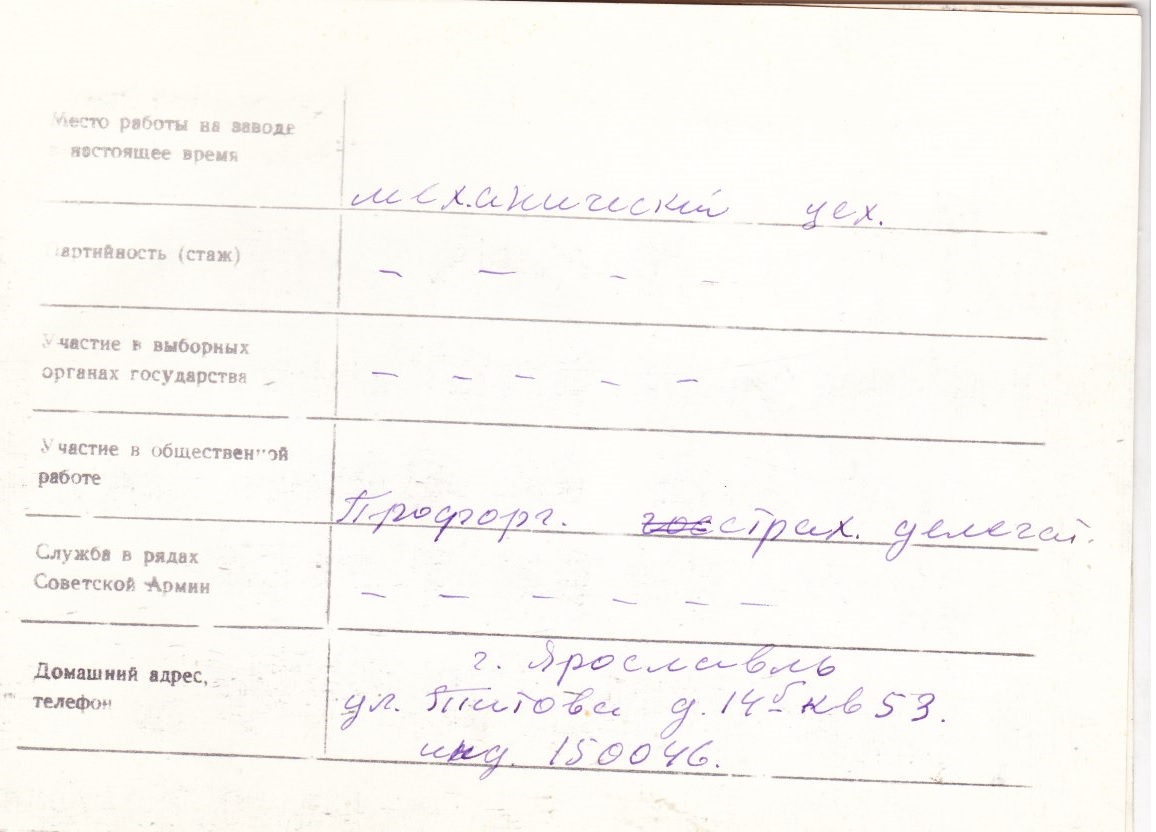 Место работы на заводе
настоящее время
механический цех.
Партийность (стаж)
– – – –
Участие в выборных
органах государства
– – – – –
Участие в общественной
работе
Профорг. страх. делегат.
Служба в рядах
Советской Армии
– – – – – –
Домашний адрес,
телефон
г. Ярославль
ул. Титова д. 14б кв 53.
инд. 150046.